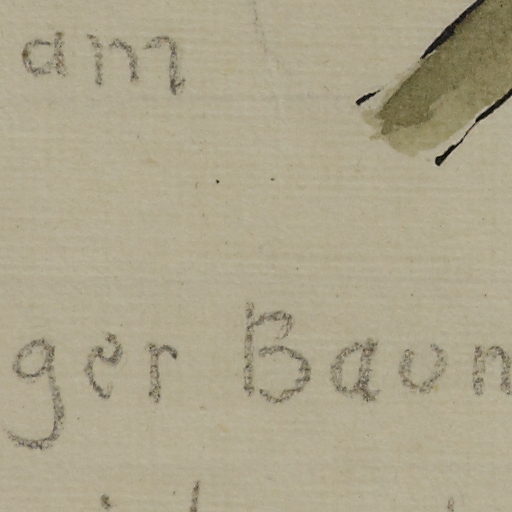 am
ger Baum